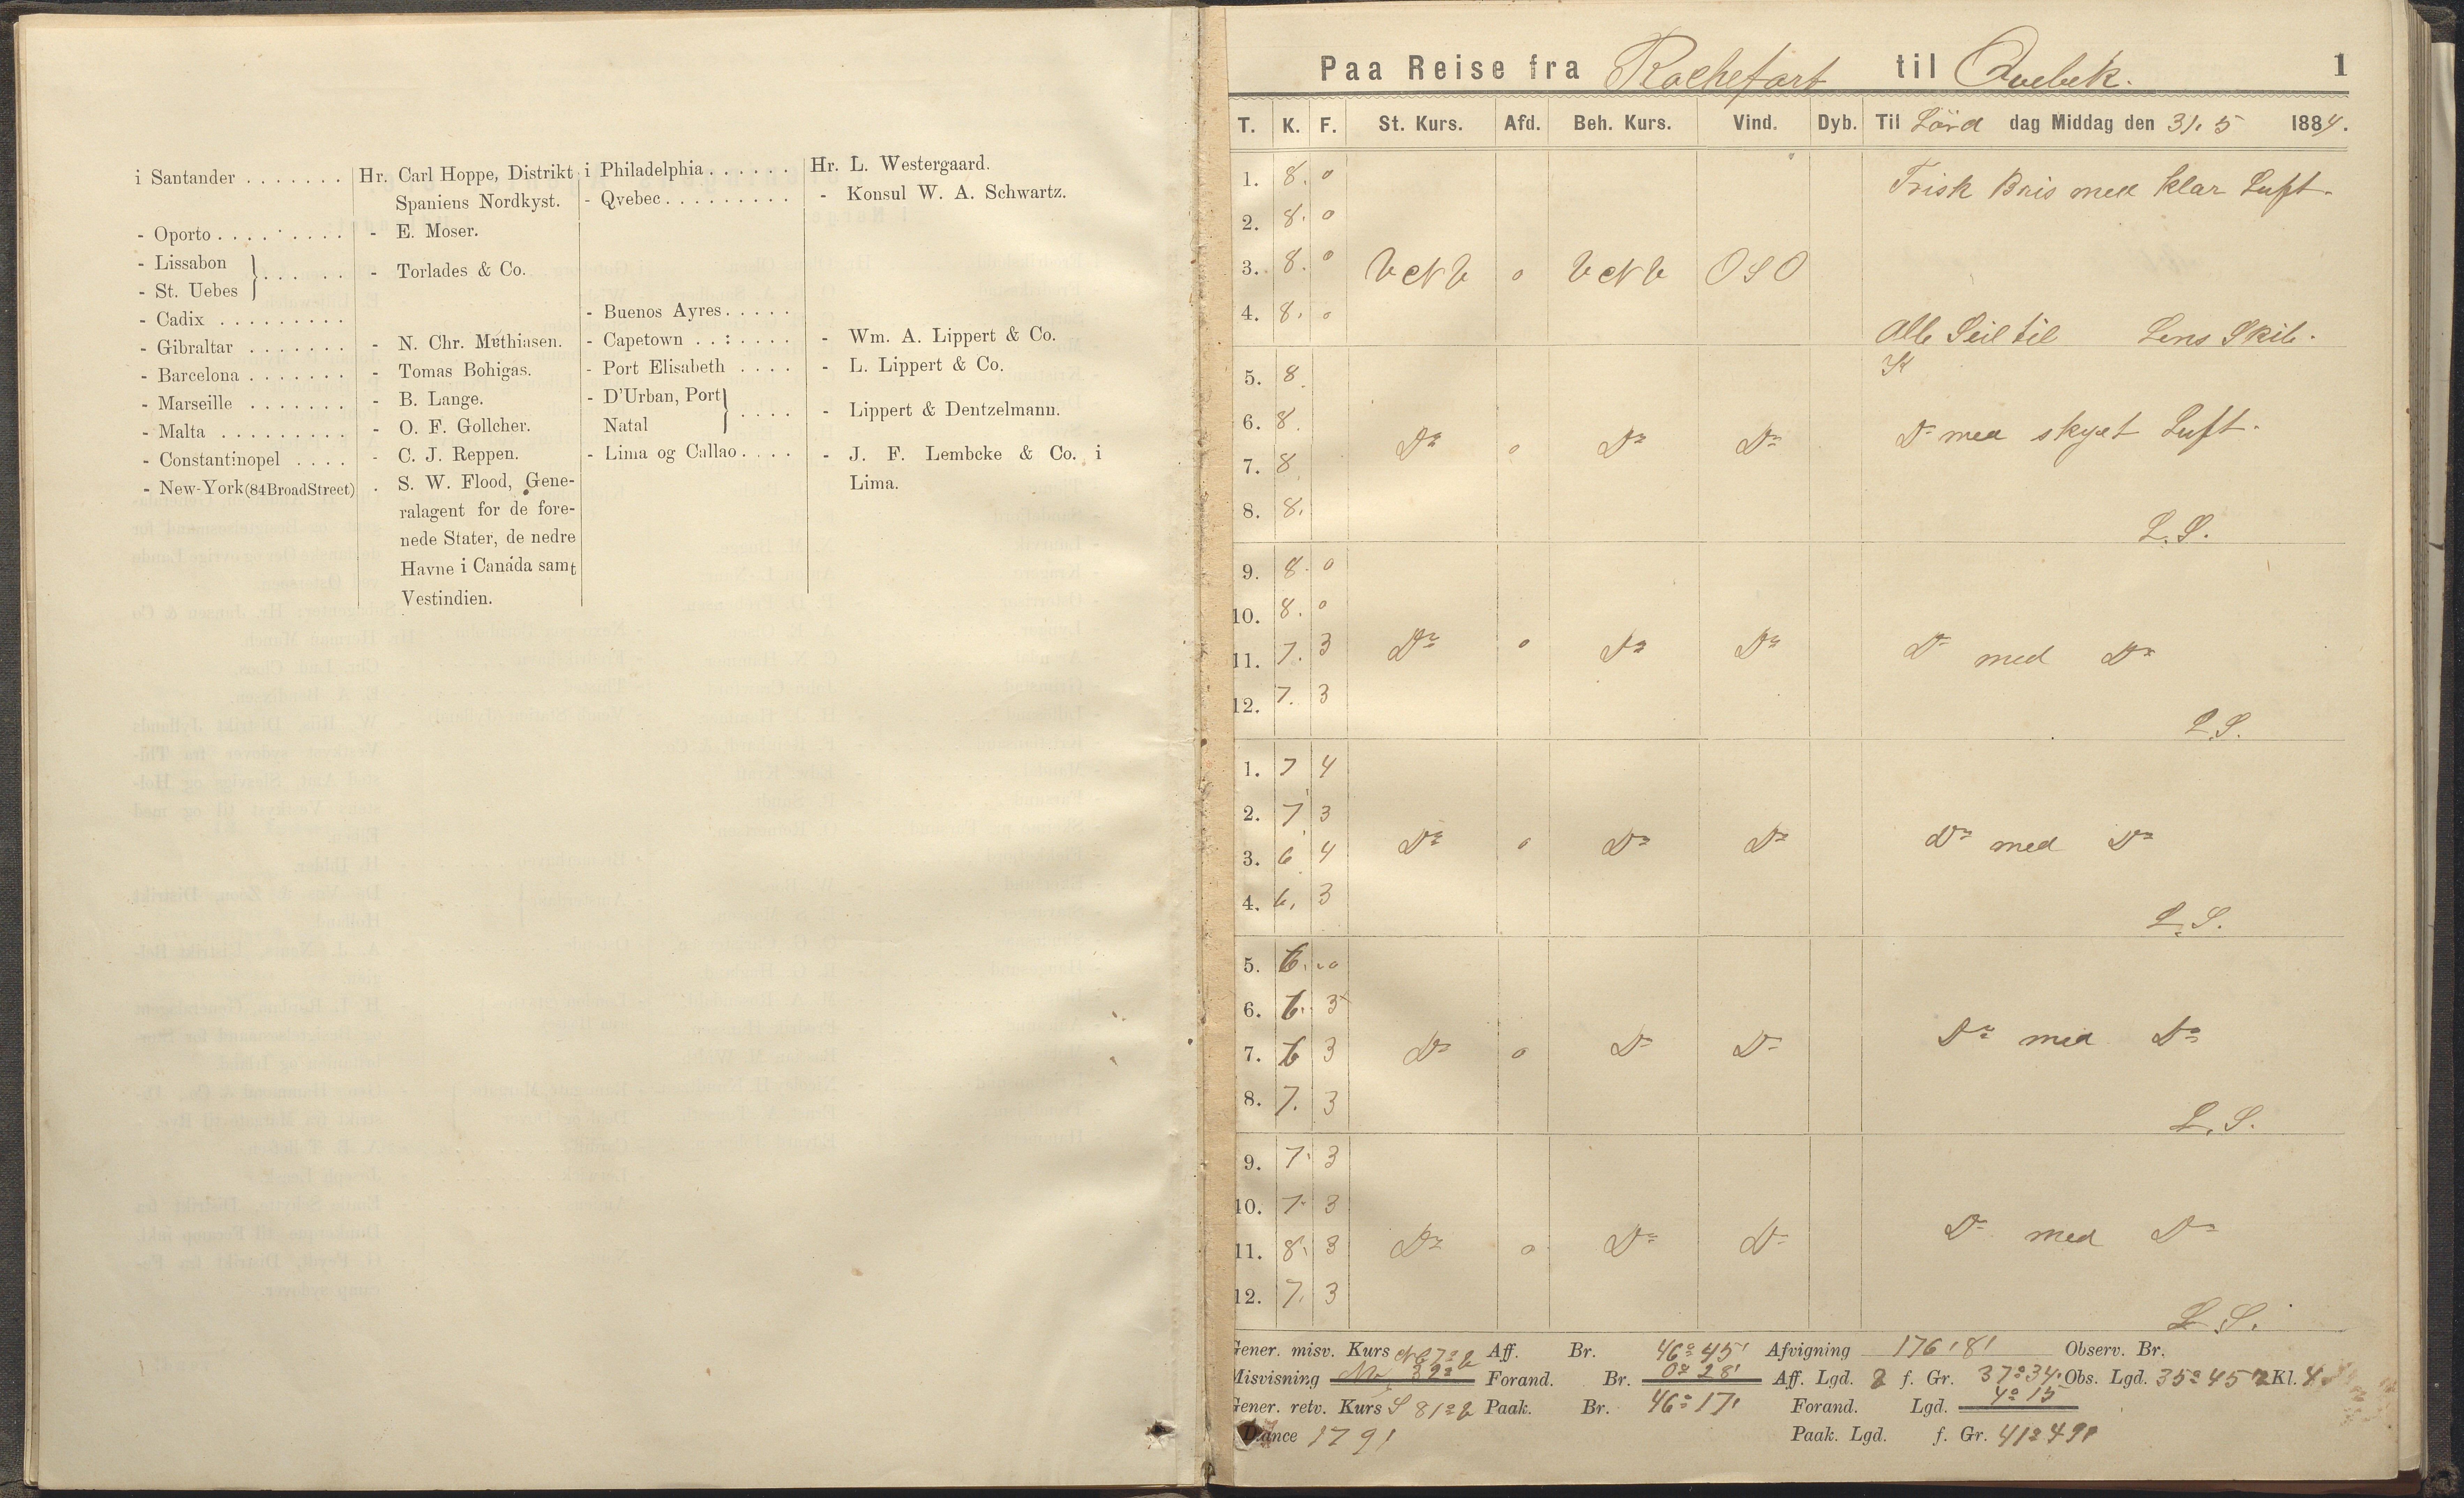 i Santander . . . . . . . Hr. Carl Hoppe, Distrikt
Spaniens Nordkyst.
- Oporto . . . . . . . . - E. Moser.
- Lissabon
- St. Uebes } . . . . . - Torlades & Co.
- Cadix . . . . . . . . .
- Gibraltar . . . . . . . - N. Chr. Mathiasen.
- Barcelona . . . . . . . - Tomas Bohigas.
- Marseille . . . . . . . - B. Lange.
- Malta . . . . . . . . . - O. F. Gollcher.
- Constantinopel . . . . - C. J. Reppen.
- New-York (84 Broad Street) . S. W. Flood, Gene-
ralagent for de fore-
nede Stater, de nedre
Havne i Canada samt
Vestindien.
i Philadelphia . . . . . . Hr. L. Westergaard.
- Qvebec . . . . . . . . . - Konsul W. A. Schwartz.
- Buenos Ayres . . . . .
- Capetown . . : . . . . - Wm. A. Lippert & Co.
- Port Elisabeth . . . . - L. Lippert & Co.
- D'Urban, Port
Natal } . . . . - Lippert & Dentzelmann.
- Lima og Callao . . . . - J. F. Lembcke & Co. i
Lima.
Paa Reise fra Rochefort til Qvebek. 1
T. K. F. St. Kurs. Afd. Beh. Kurs. Vind. Dyb. Til Lörd dag Middag den 31. 5 1884.
1. 8. 0 Frisk Bris med klar Luft.
2. 8. 0
3. 8. 0 V N V 0 V N V O S O
4. 8. 0 Alle Seil til Lens Skib.
5. 8
6. 8. Do 0 Do Do Do med skyet Luft.
7. 8
8. 8. L. S.
9. 8. 0
10. 8. 0
11. 7. 3 Do 0 Do Do Do med Do
12. 7. 3 L. S.
1. 7 4
2. 7 3
3. 6 4 Do 0 Do Do Do med Do
4. 6. 3 L. S.
5. 6.
6. 6. 3
7. 6 3 Do 0 Do Do Do med Do
8. 7. 3 L. S.
9. 7. 3
10. 7. 3
11. 8. 3 Do 0 Do Do Do med Do
12. 7. 3 L. S.
Gener. misv. Kurs N 67° V Aff. Br. 46° 45' Afvigning 176'8' Observ. Br.
Misvisning 32° Forand. Br. 0° 28' Aff. Lgd. V f. Gr. 37° 34' Obs. Lgd. 35° 45 V Kl. 4
Gener. retv. Kurs S 81° V Paak. Br. 46° 17' Forand. Lgd. 4° 15
Distance 179' Paak. Lgd. f. Gr. 41° 49'